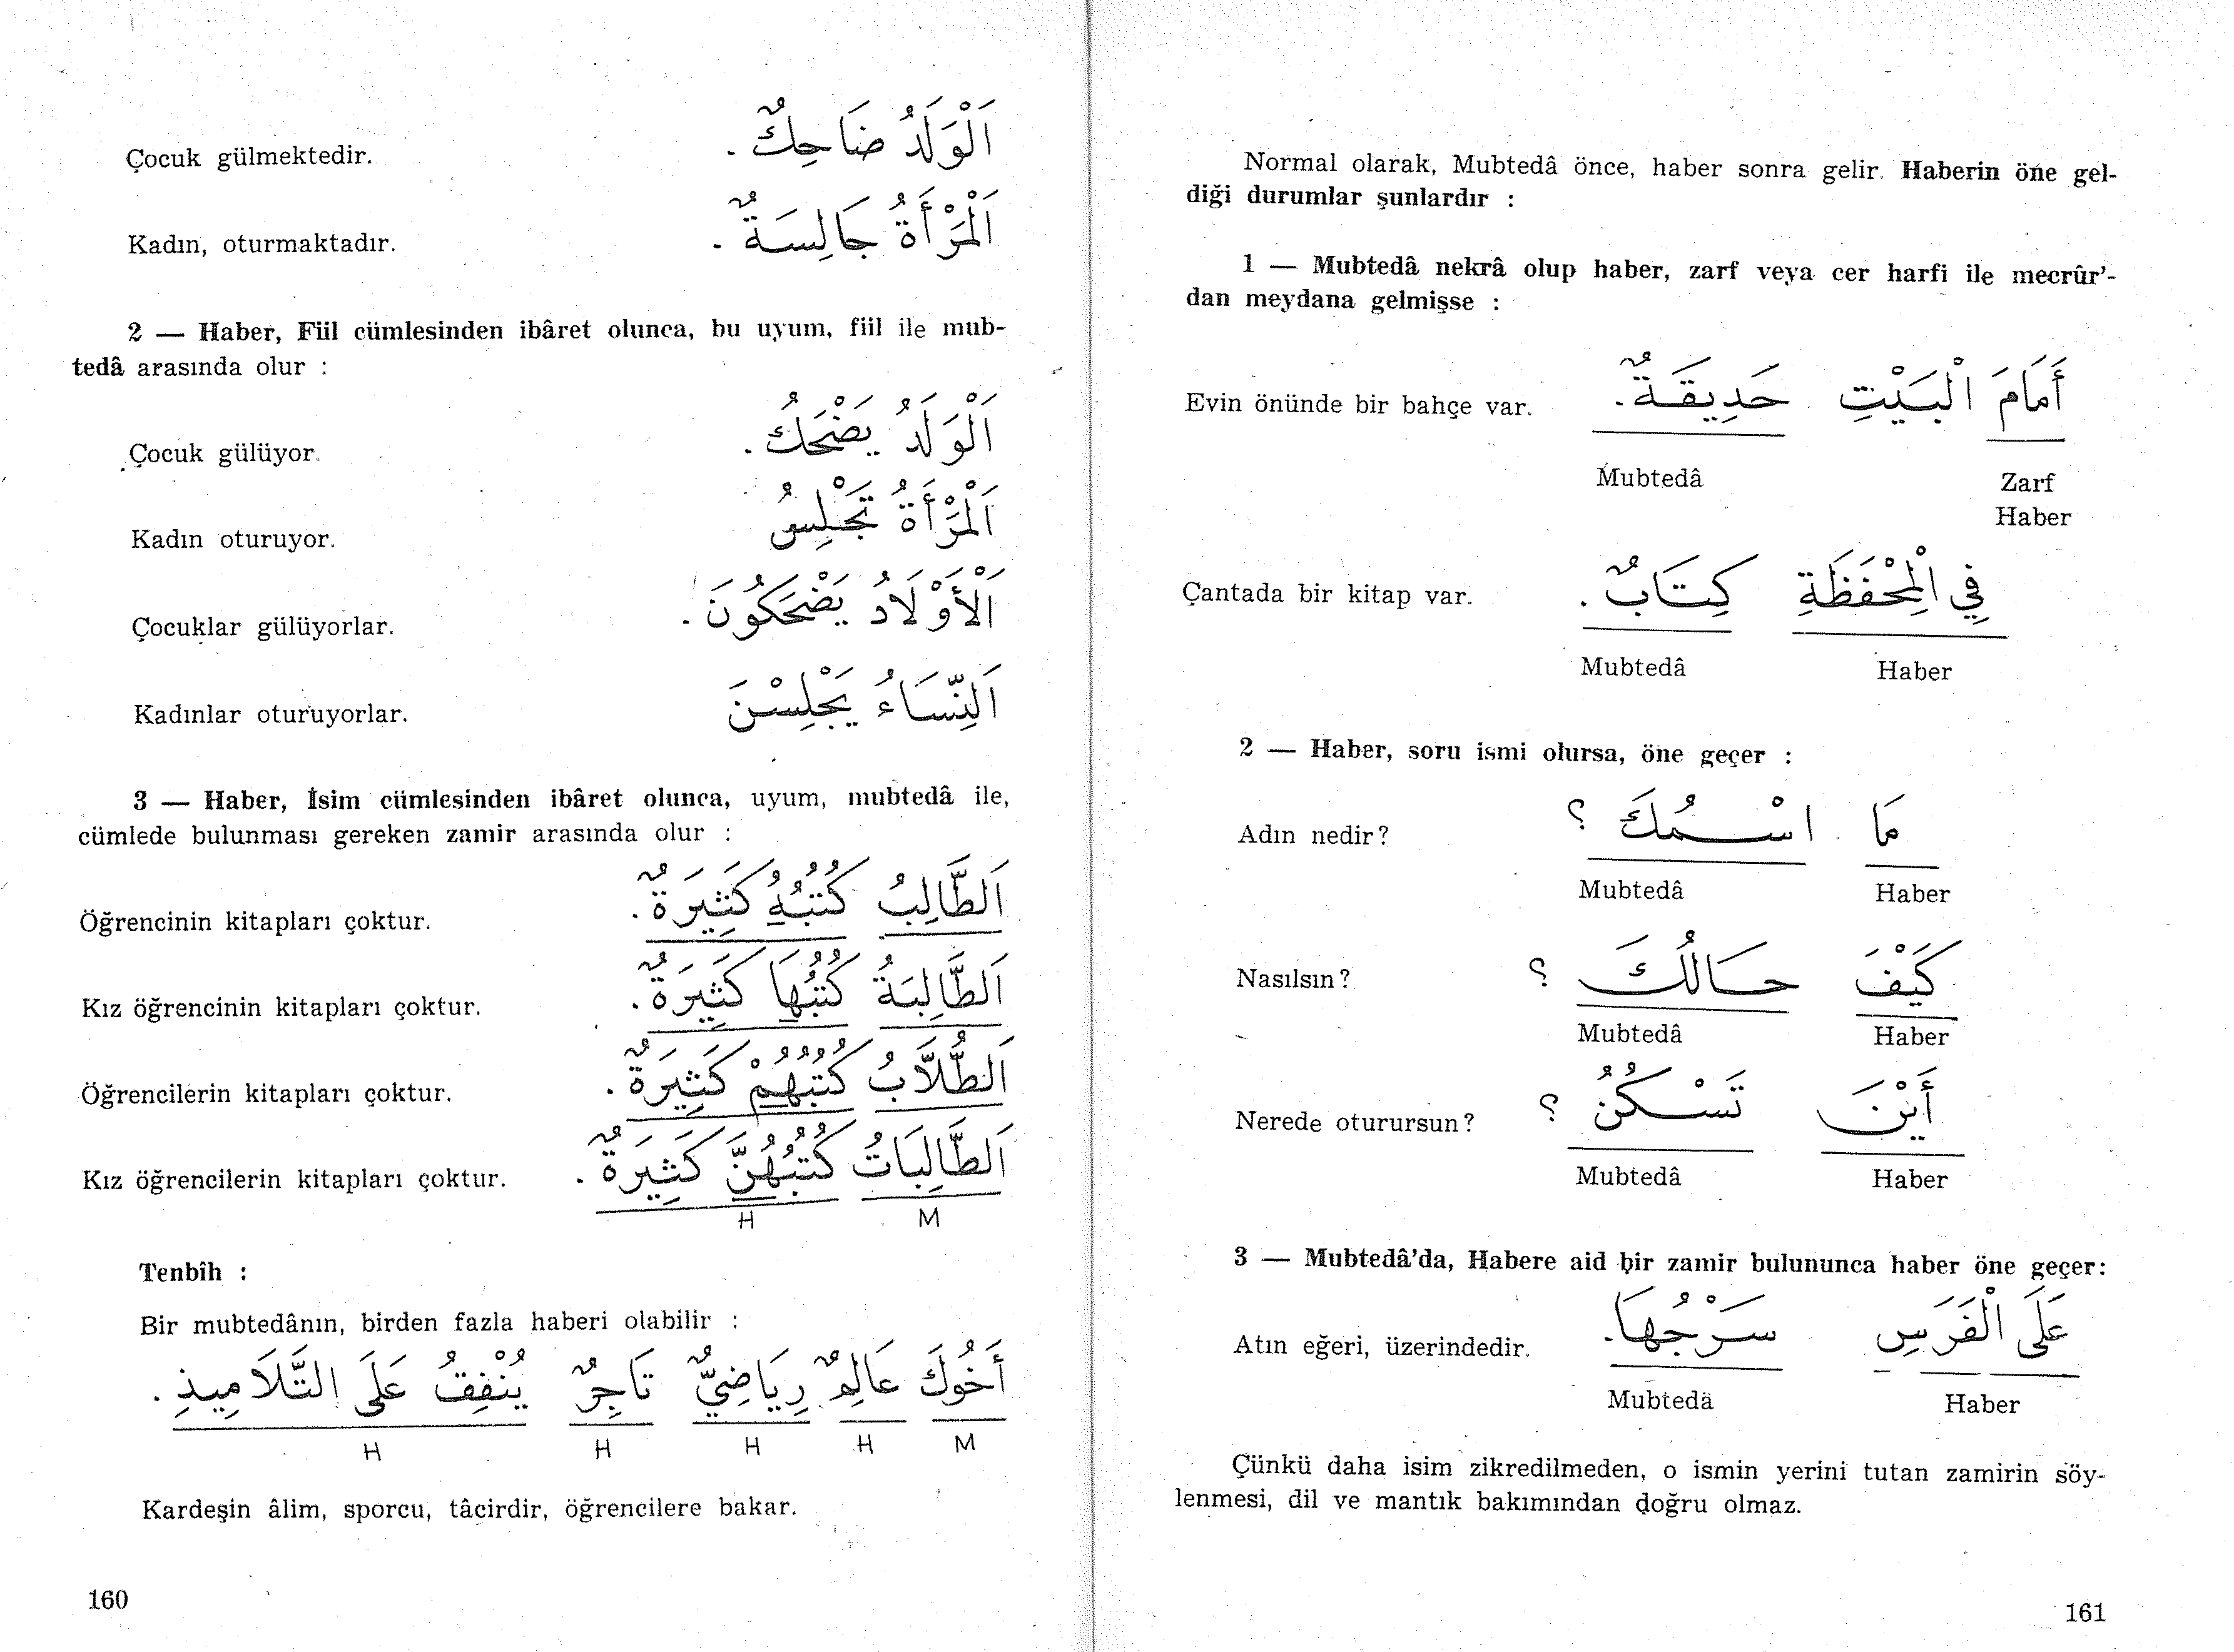 Çocuk gülmektedir. اَلْوَلَدُ ضَاحِكٌ .
Kadın, oturmaktadır. اَلْمَرْأَةُ جَالِسَةٌ .
2 — Haber, Fiil cümlesinden ibâret olunca, bu uyum, fiil ile mub-
tedâ arasında olur :
Çocuk gülüyor. اَلْوَلَدُ يَضْحَكُ .
Kadın oturuyor. اَلْمَرْأَةُ تَجْلِسُ
Çocuklar gülüyorlar. اَلْأَوْلَادُ يَضْحَكُونَ .
Kadınlar oturuyorlar. اَلنِّسَاءُ يَجْلِسْنَ
3 — Haber, İsim cümlesinden ibâret olunca, uyum, mubtedâ ile,
cümlede bulunması gereken zamir arasında olur :
Öğrencinin kitapları çoktur. اَلطَّالِبُ كُتُبُهُ كَثِيرَةٌ .
Kız öğrencinin kitapları çoktur. اَلطَّالِبَةُ كُتُبُهَا كَثِيرَةٌ .
Öğrencilerin kitapları çoktur. اَلطُّلَّابُ كُتُبُهُمْ كَثِيرَةٌ .
Kız öğrencilerin kitapları çoktur. اَلطَّالِبَاتُ كُتُبُهُنَّ كَثِيرَةٌ .
H M
Tenbîh :
Bir mubtedânın, birden fazla haberi olabilir :
أَخُوكَ عَالِمٌ رِيَاضِيٌّ تَاجِرٌ يُنْفِقُ عَلَى التَّلَامِيذِ .
H H H H M
Kardeşin âlim, sporcu, tâcirdir, öğrencilere bakar.
160
Normal olarak, Mubtedâ önce, haber sonra gelir. Haberin öne gel-
diği durumlar şunlardır :
1 — Mubtedâ nekrâ olup haber, zarf veya cer harfi ile mecrûr'-
dan meydana gelmişse :
Evin önünde bir bahçe var. أَمَامَ الْبَيْتِ حَدِيقَةٌ .
Mubtedâ Zarf
Haber
Çantada bir kitap var. فِي الْمِحْفَظَةِ كِتَابٌ .
Mubtedâ Haber
2 — Haber, soru ismi olursa, öne geçer :
Adın nedir? مَا اسْمُكَ ؟
Mubtedâ Haber
Nasılsın? كَيْفَ حَالُكَ ؟
Mubtedâ Haber
Nerede oturursun? أَيْنَ تَسْكُنُ ؟
Mubtedâ Haber
3 — Mubtedâ'da, Habere aid bir zamir bulununca haber öne geçer:
Atın eğeri, üzerindedir. عَلَى الْفَرَسِ سَرْجُهَا.
Mubtedâ Haber
Çünkü daha isim zikredilmeden, o ismin yerini tutan zamirin söy-
lenmesi, dil ve mantık bakımından doğru olmaz.
161